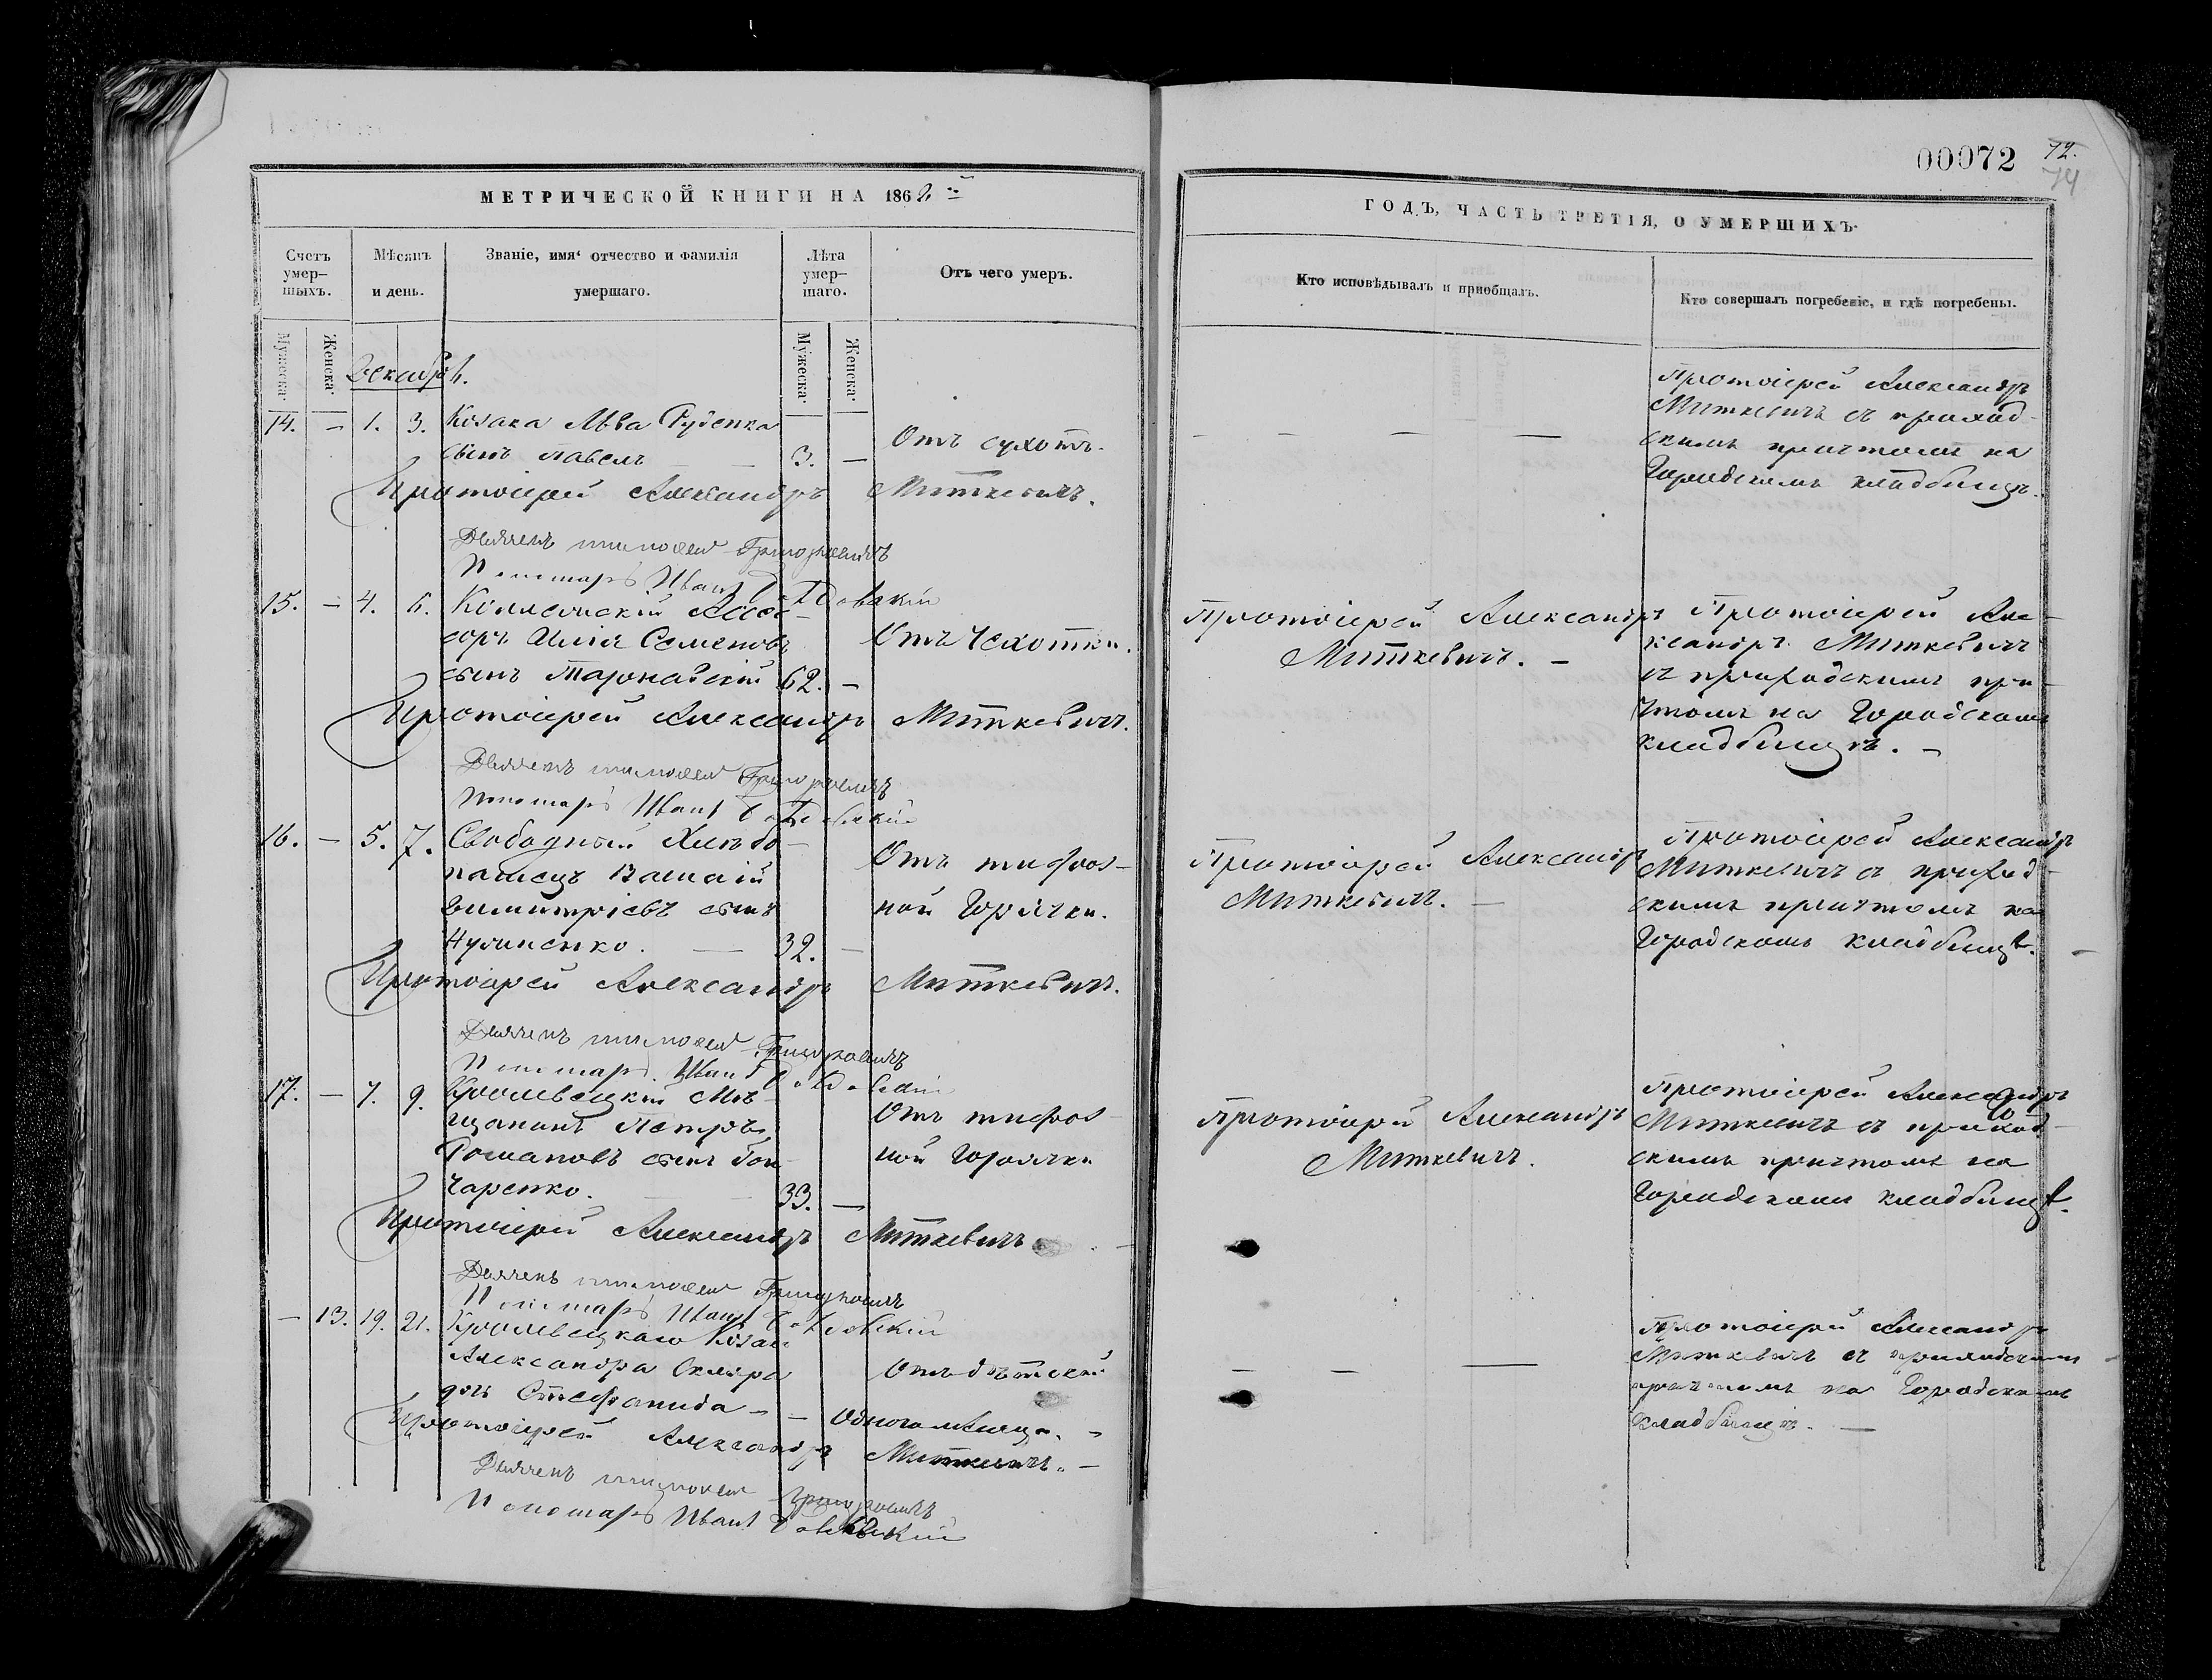 МЕТРИЧЕСКОЙ КНИГИ НА 1862 й
Счетъ умер-шыхъ.
Мѣсяцъ и день.
Званіе, имя отчество и фамилія умершаго.
Лѣта умер-шаго.
Отъ чего умеръ.
Мужеска.
Женска.
Мужеска.
Женска.
Декабрь.
14. — 1. 3. Козака Льва Руденка
сынъ Павелъ — — 3. — Отъ сухотъ.
Протоіерей Александръ Миткевичъ.
Дьячекъ Тимофей Григоровичъ
Пономарь Иванъ
15. — 4. 6. Коллежскій Ассес-
соръ Илія Семеновъ Отъ Чехотки.
сынъ Тарнавскій 62. —
Протоіерей Александръ Миткевичъ.
Дьячекъ Тимофей Григоровичъ
Пономарь Иванъ
16. — 5. 7. Свободный Хлѣбо-
пашецъ Василій Отъ тифоз-
Димитріевъ сынъ ной Горячки.
32. —
Протоіерей Александръ Миткевичъ.
Дьячекъ Тимофей Григоровичъ
Пономарь Иванъ
17. — 7. 9. Кролевецкій Мѣ-
щанинъ Петръ Отъ тифоз-
Романовъ сынъ Гон- ной Горячки
чаренко. — — 33. —
Протоіерей Александръ Миткевичъ
Дьячекъ Тимофей Григоровичъ
Пономарь Иванъ
— 13. 19. 21. Кролевецкаго Козака
Александра Отъ дѣтской
дочь Стефанида — — Одного мѣсяца. —
Протоіерей Александръ Миткевичъ. —
Дьячекъ Тимофей Григоровичъ
Пономарь Иванъ
00072
72.
74
ГОДЪ, ЧАСТЬ ТРЕТІЯ, О УМЕРШИХЪ.
Кто исповѣдывалъ и пріобщалъ.
Кто совершалъ погребеніе, и гдѣ погребены.
— — — —
Протоіерей Александръ
Миткевичъ съ приход-
скимъ причтомъ на
Городскомъ кладбищѣ.
Протоіерей Александръ
Миткевичъ. —
Протоіерей Але-
ксандръ Миткевичъ
съ приходскимъ при-
чтомъ на Городскомъ
кладбищѣ. —
Протоіерей Александръ
Миткевичъ. —
Протоіерей Александръ
Миткевичъ съ приход-
скимъ причтомъ на
Городскомъ кладбищѣ. —
Протоіерей Александръ
Миткевичъ.
Протоіерей Александръ
Миткевичъ съ приход-
скимъ причтомъ на
Городскомъ кладбищѣ.
— — —
Протоіерей Александръ
Миткевичъ съ приходскимъ
причтомъ на Городскомъ
кладбищѣ. —